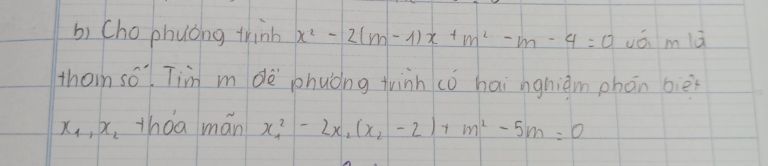 b) Cho phương trình x² - 2(m-1)x + m² - m - 4 = 0 với m là
tham số. Tìm m để phương trình có hai nghiệm phân biệt
x₁, x₂ thỏa mãn x₁² - 2x₂(x₂ - 2) + m² - 5m = 0